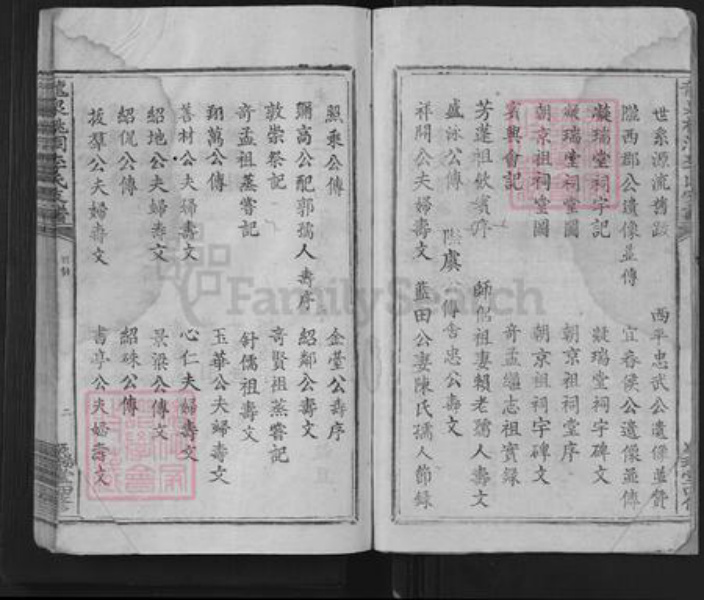 世系源流舊跋 西平忠武公遺像並贊
隴西郡公遺像並傳 宜春侯公遺像並傳
凝瑞堂祠宇記 凝瑞堂祠宇碑文
凝瑞堂祠堂圖 朝京祖祠堂序
朝京祖祠堂圖 朝京祖祠宇碑文
賓興會記 奇孟繼志祖實錄
芳蓮祖飲賓序 師侶祖妻賴老孺人壽文
盛泳公傳 虞 傳舍忠公壽文
祥開公夫婦壽文 藍田公妻陳氏孺人節錄
照乘公傳 金瑩公壽序
彌高公配郭孺人壽序 紹鄰公壽文
敦崇祭記 奇賢祖蒸嘗記
奇孟祖蒸嘗記 針儒祖壽文
翔萬公傳 玉華公夫婦壽文
善材公夫婦壽文 心仁夫婦壽文
紹地公夫婦壽文 景梁公傳文
紹侃公傳 紹硃公傳
拔羣公夫婦壽文 書亭公夫婦壽文
二
FamilySearch